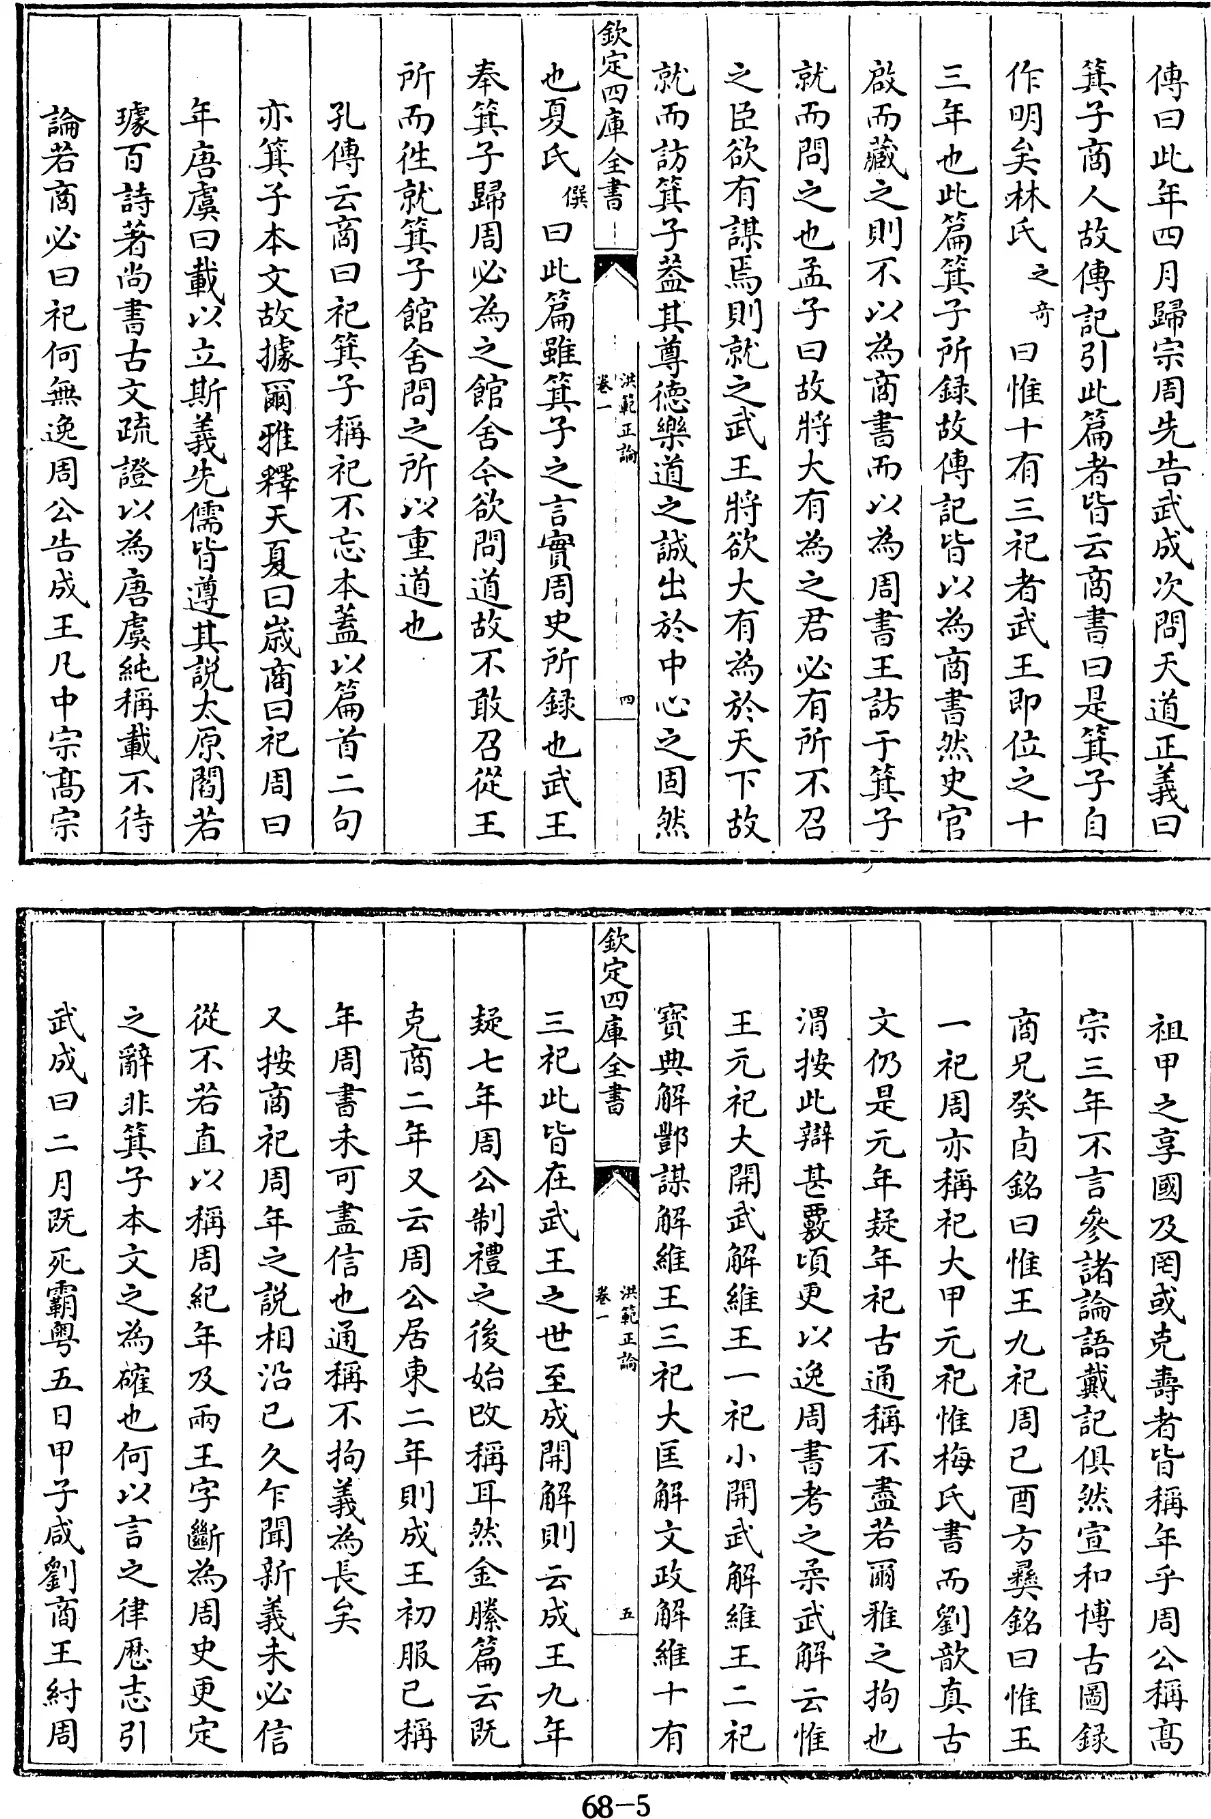 傳曰此年四月歸宗周先告武成次問天道正義曰
箕子商人故傳記引此篇者皆云商書曰是箕子自
作明矣林氏之奇曰惟十有三祀者武王即位之十
三年也此篇箕子所録故傳記皆以為商書然史官
啟而藏之則不以為商書而以為周書王訪于箕子
就而問之也孟子曰故將大有為之君必有所不召
之臣欲有謀焉則就之武王將欲大有為於天下故
就而訪箕子葢其尊德樂道之誠出於中心之固然
欽定四庫全書
洪範正論
卷一
四
也夏氏僎曰此篇雖箕子之言實周史所録也武王
奉箕子歸周必為之館舍今欲問道故不敢召從王
所而徃就箕子館舍問之所以重道也
孔傳云商曰祀箕子稱祀不忘本蓋以篇首二句
亦箕子本文故據爾雅釋天夏曰歲商曰祀周曰
年唐虞曰載以立斯義先儒皆遵其説太原閻若
璩百詩著尚書古文疏證以為唐虞純稱載不待
論若商必曰祀何無逸周公告成王凡中宗髙宗
祖甲之享國及罔或克壽者皆稱年乎周公稱髙
宗三年不言參諸論語戴記俱然宣和博古圖録
商兄癸卣銘曰惟王九祀周己酉方彞銘曰惟王
一祀周亦稱祀大甲元祀惟梅氏書而劉歆真古
文仍是元年疑年祀古通稱不盡若爾雅之拘也
渭按此辯甚覈頃更以逸周書考之柔武解云惟
王元祀大開武解維王一祀小開武解維王二祀
寳典解酆謀解維王三祀大匡解文政解維十有
欽定四庫全書
洪範正論
卷一
五
三祀此皆在武王之世至成開解則云成王九年
疑七年周公制禮之後始改稱耳然金縢篇云既
克商二年又云周公居東二年則成王初服已稱
年周書未可盡信也通稱不拘義為長矣
又按商祀周年之説相沿已久乍聞新義未必信
從不若直以稱周紀年及兩王字斷為周史更定
之辭非箕子本文之為確也何以言之律厯志引
武成曰二月既死霸粤五日甲子咸劉商王紂周
68-5